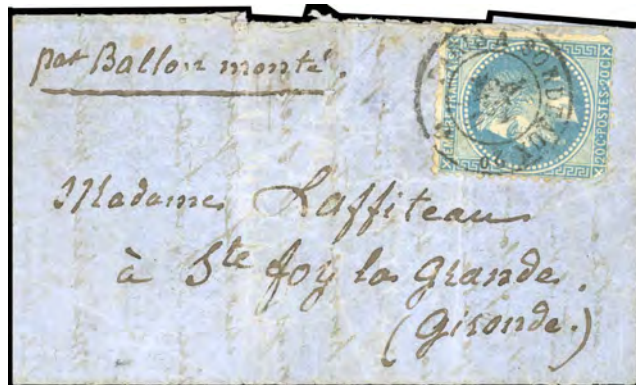 par Ballon monté.
PARIS A BORDEAUX
20C·POSTES·20C
Madame Laffiteau
à Ste foy la Grande.
(Gironde.)